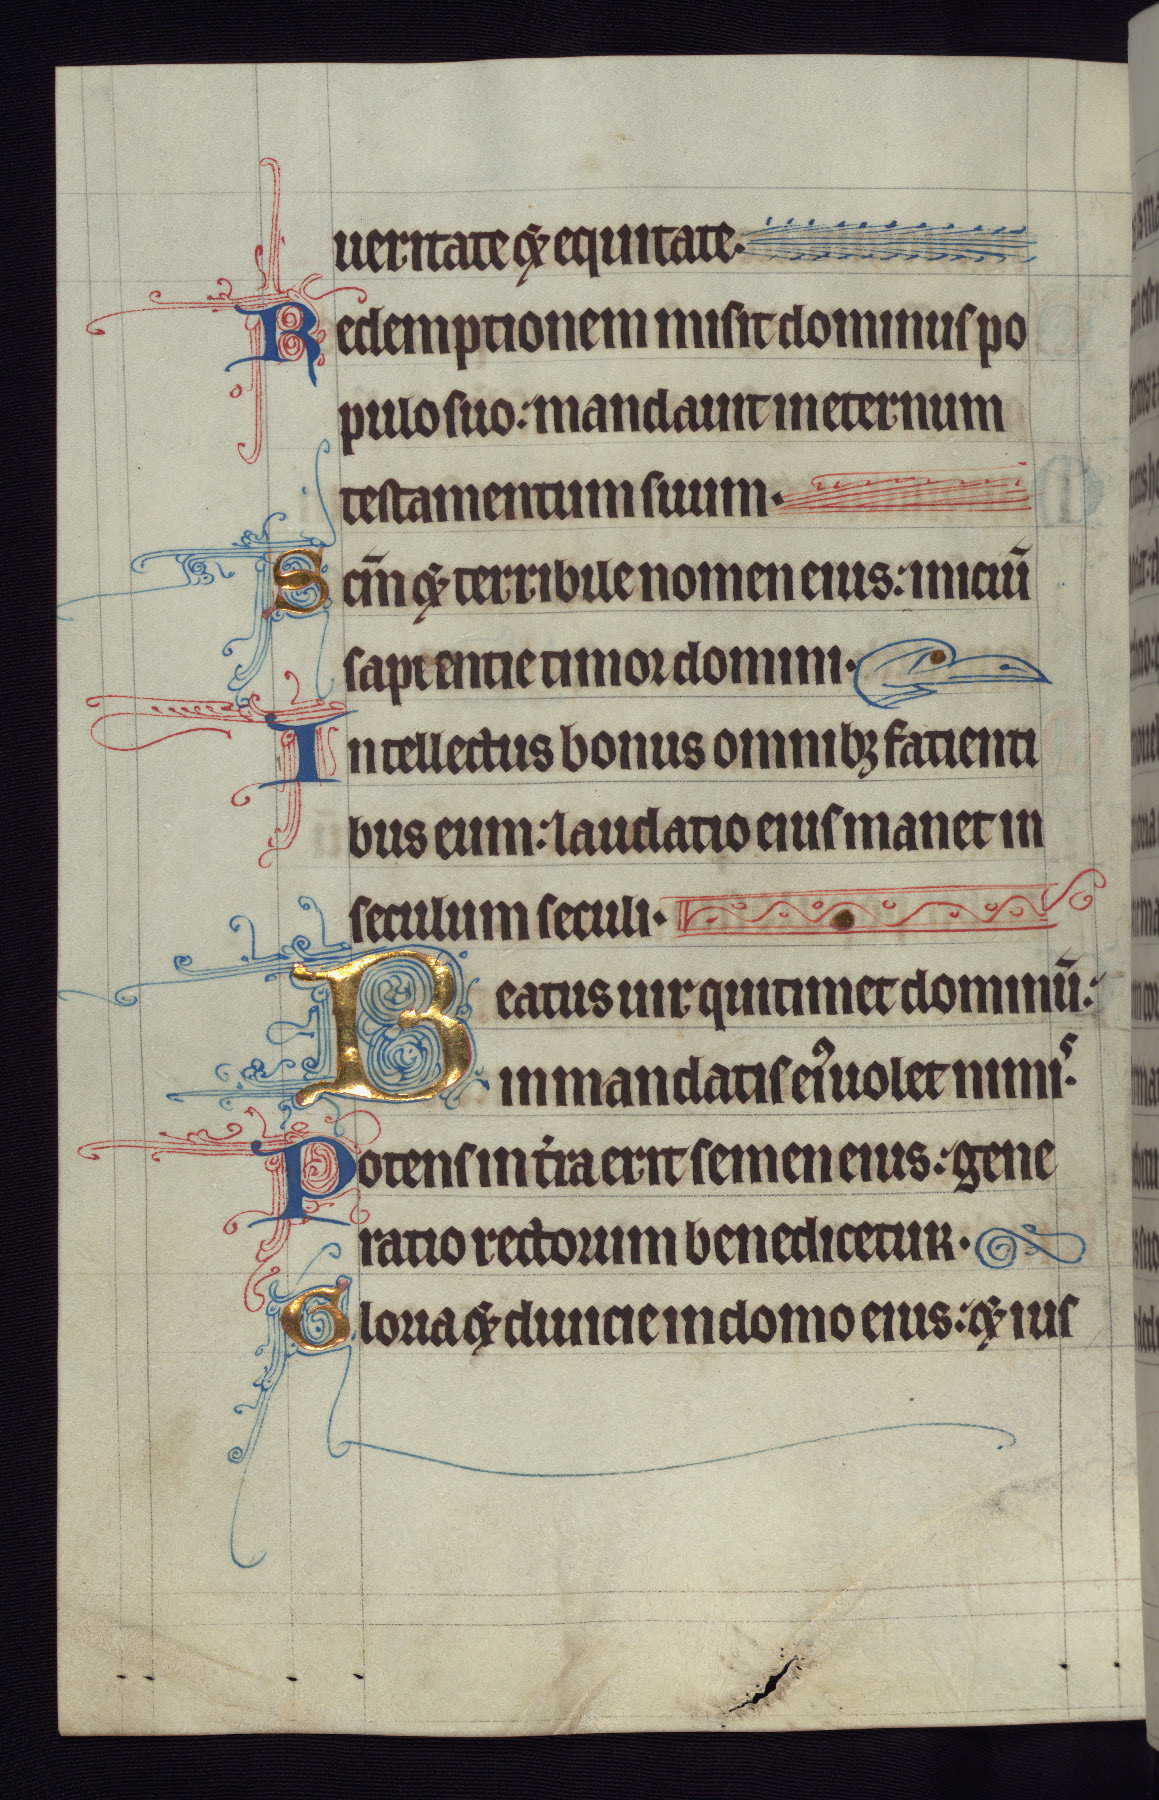 ueritate ⁊ equitate.
Redemptionem misit dominus po
pulo suo: mandauit in eternum
testamentum suum.
Scm̄ ⁊ terribile nomen eius: iniciū
sapientie timor domini.
Intellectus bonus omnibꝫ facienti
bus eum: laudatio eius manet in
seculum seculi.
Beatus uir qui timet dominū:
in mandatis eiꝰ uolet nimis.
Potens in t̉ra erit semen eius: gene
ratio rectorum benedicetur.
Gloria ⁊ diuicie in domo eius: ⁊ ius